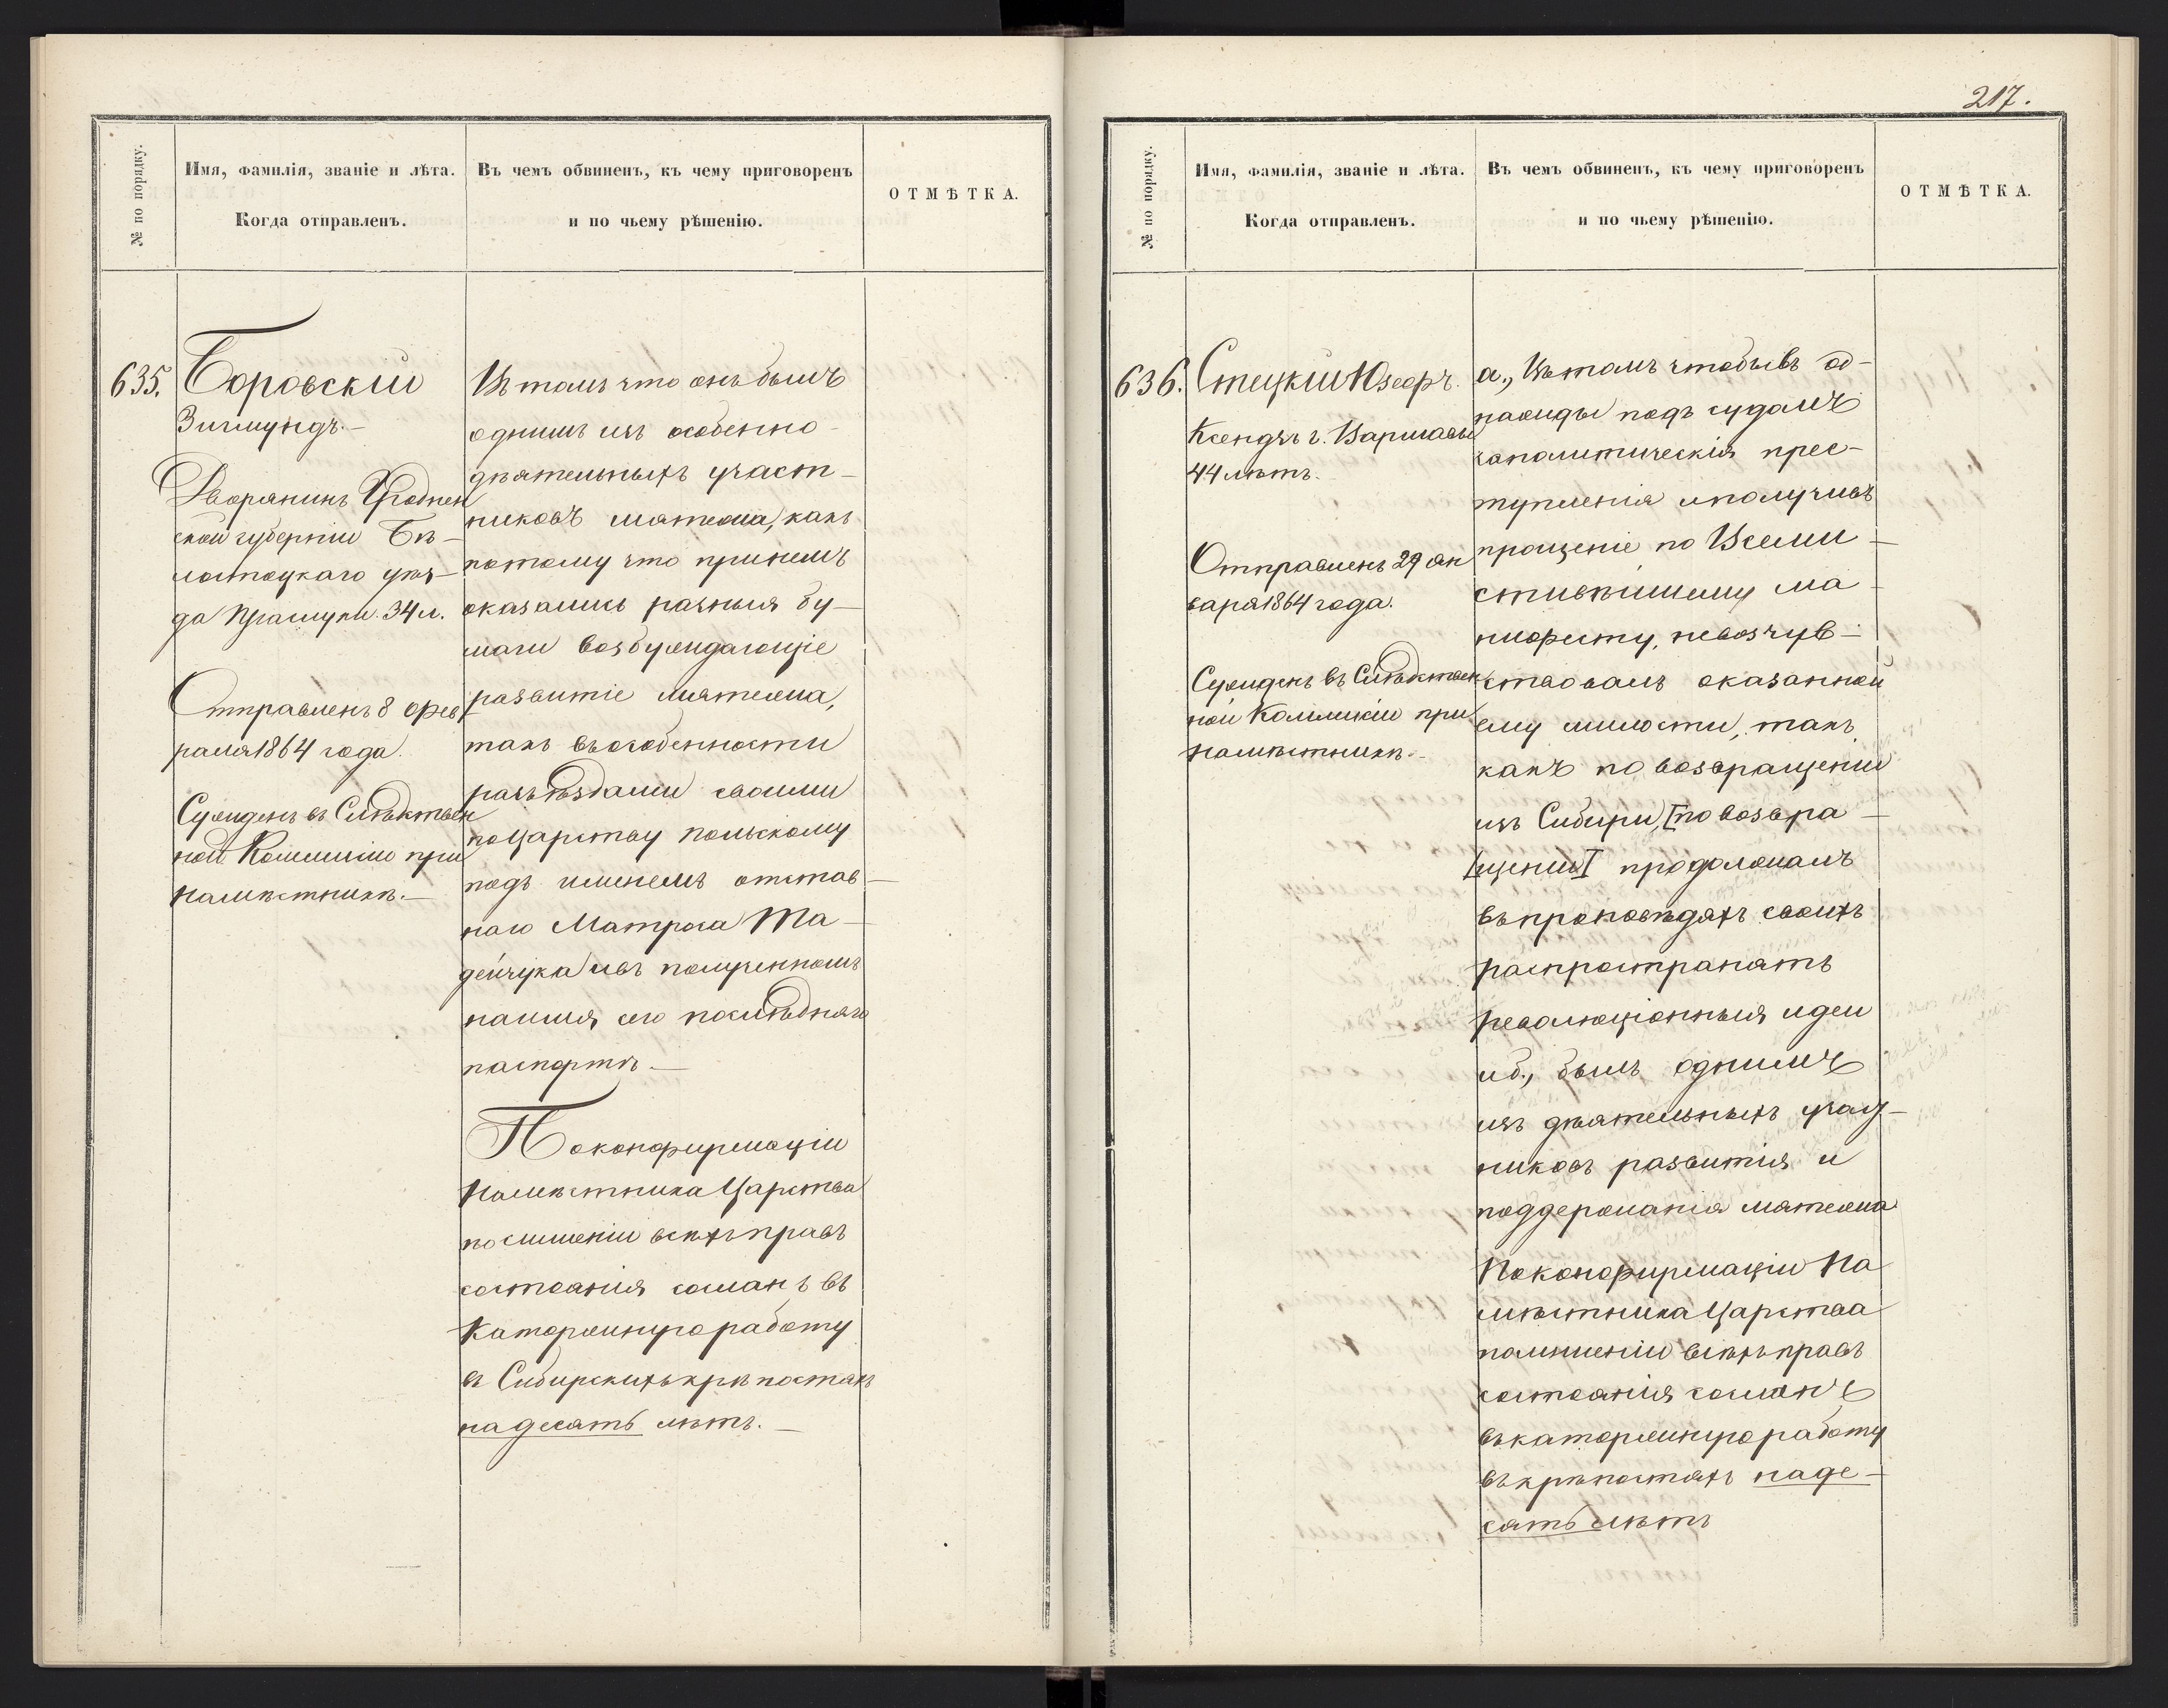 217.
№ по порядку.
Имя, фамилія, званіе и лѣта.
Когда отправленъ.
Въ чемъ обвиненъ, къ чему приговоренъ
и по чьему рѣшенію.
ОТМѢТКА.
635.
Боровскій
Зигмундъ.—
Дворянинъ Гроднен
ской губерніи Бѣ—
лостоцкаго уѣз—
да 34 л.
Отправленъ 8 фев
раля 1864 года.
Сужденъ въ Слѣдствен
ной Коммисіи при
Намѣстникѣ.—
Въ томъ что онъ былъ
однимъ изъ особенно
дѣятельныхъ участ—
никовъ мятежа, какъ
потому что при немъ
оказались разныя бу—
маги возбуждающіе
развитіе мятежа,
такъ въ особенности
разъѣздами своими
по Царству Польскому
подъ именемъ отстав—
наго Матроса Ма—
дейчука и въ полученномъ
на имя сего послѣдняго
паспортѣ.—
По конфирмаціи
Намѣстника Царства
по лишеніи всѣхъ правъ
состоянія сосланъ въ
Каторжную работу
въ Сибирскихъ крѣпостяхъ
на десять лѣтъ.—
№ по порядку.
Имя, фамилія, званіе и лѣта.
Когда отправленъ.
Въ чемъ обвиненъ, къ чему приговоренъ
и по чьему рѣшенію.
ОТМѢТКА.
636.
Стецкій Юзефъ.
Ксендзъ г. Варшавы
44 лѣтъ.
Отправленъ 29 ян
варя 1864 года.
Сужденъ въ Слѣдствен
ной Коммисіи при
Намѣстникѣ.—
а., Въ томъ что бывъ од—
нажды подъ судомъ
за политическія прес—
тупленія и получивъ
прощеніе по Всеми—
стивѣйшему ма—
нифесту, не возчув—
ствовалъ оказанной
ему милости, такъ
какъ по возвращеніи
изъ Сибири, [по возвра—
щеніи] продолжалъ
въ проповѣдяхъ своихъ
распространять
революціонныя идеи
и б., былъ однимъ
изъ дѣятельныхъ учас—
никовъ развитія и
поддержанія мятежа
По конфирмаціи На
мѣстника Царства
по лишеніи всѣхъ правъ
состоянія сосланъ
въ каторжную работу
въ крѣпостяхъ на де—
сять лѣтъ